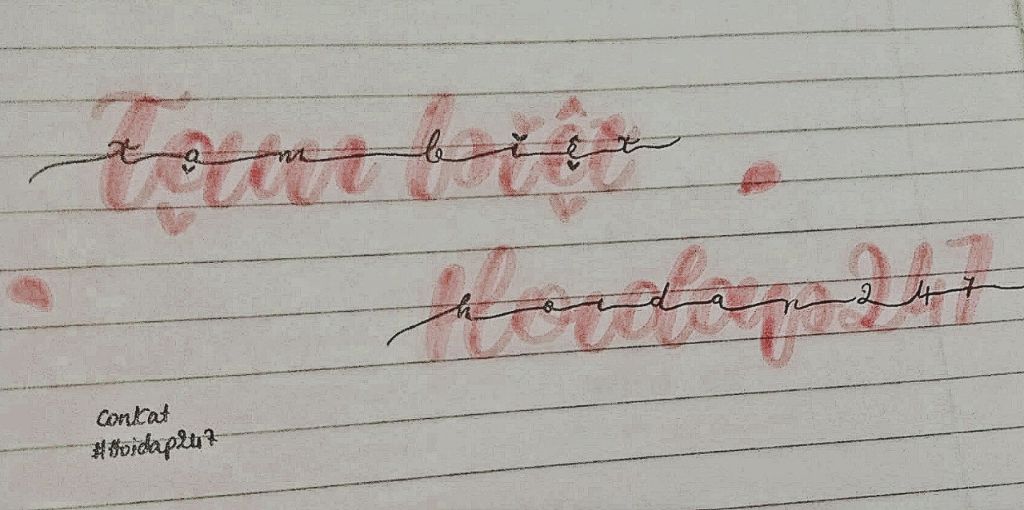 Tạm biệt
tạm biệt
Hoidap247
hoidap247
Conkat
#Hoidap247